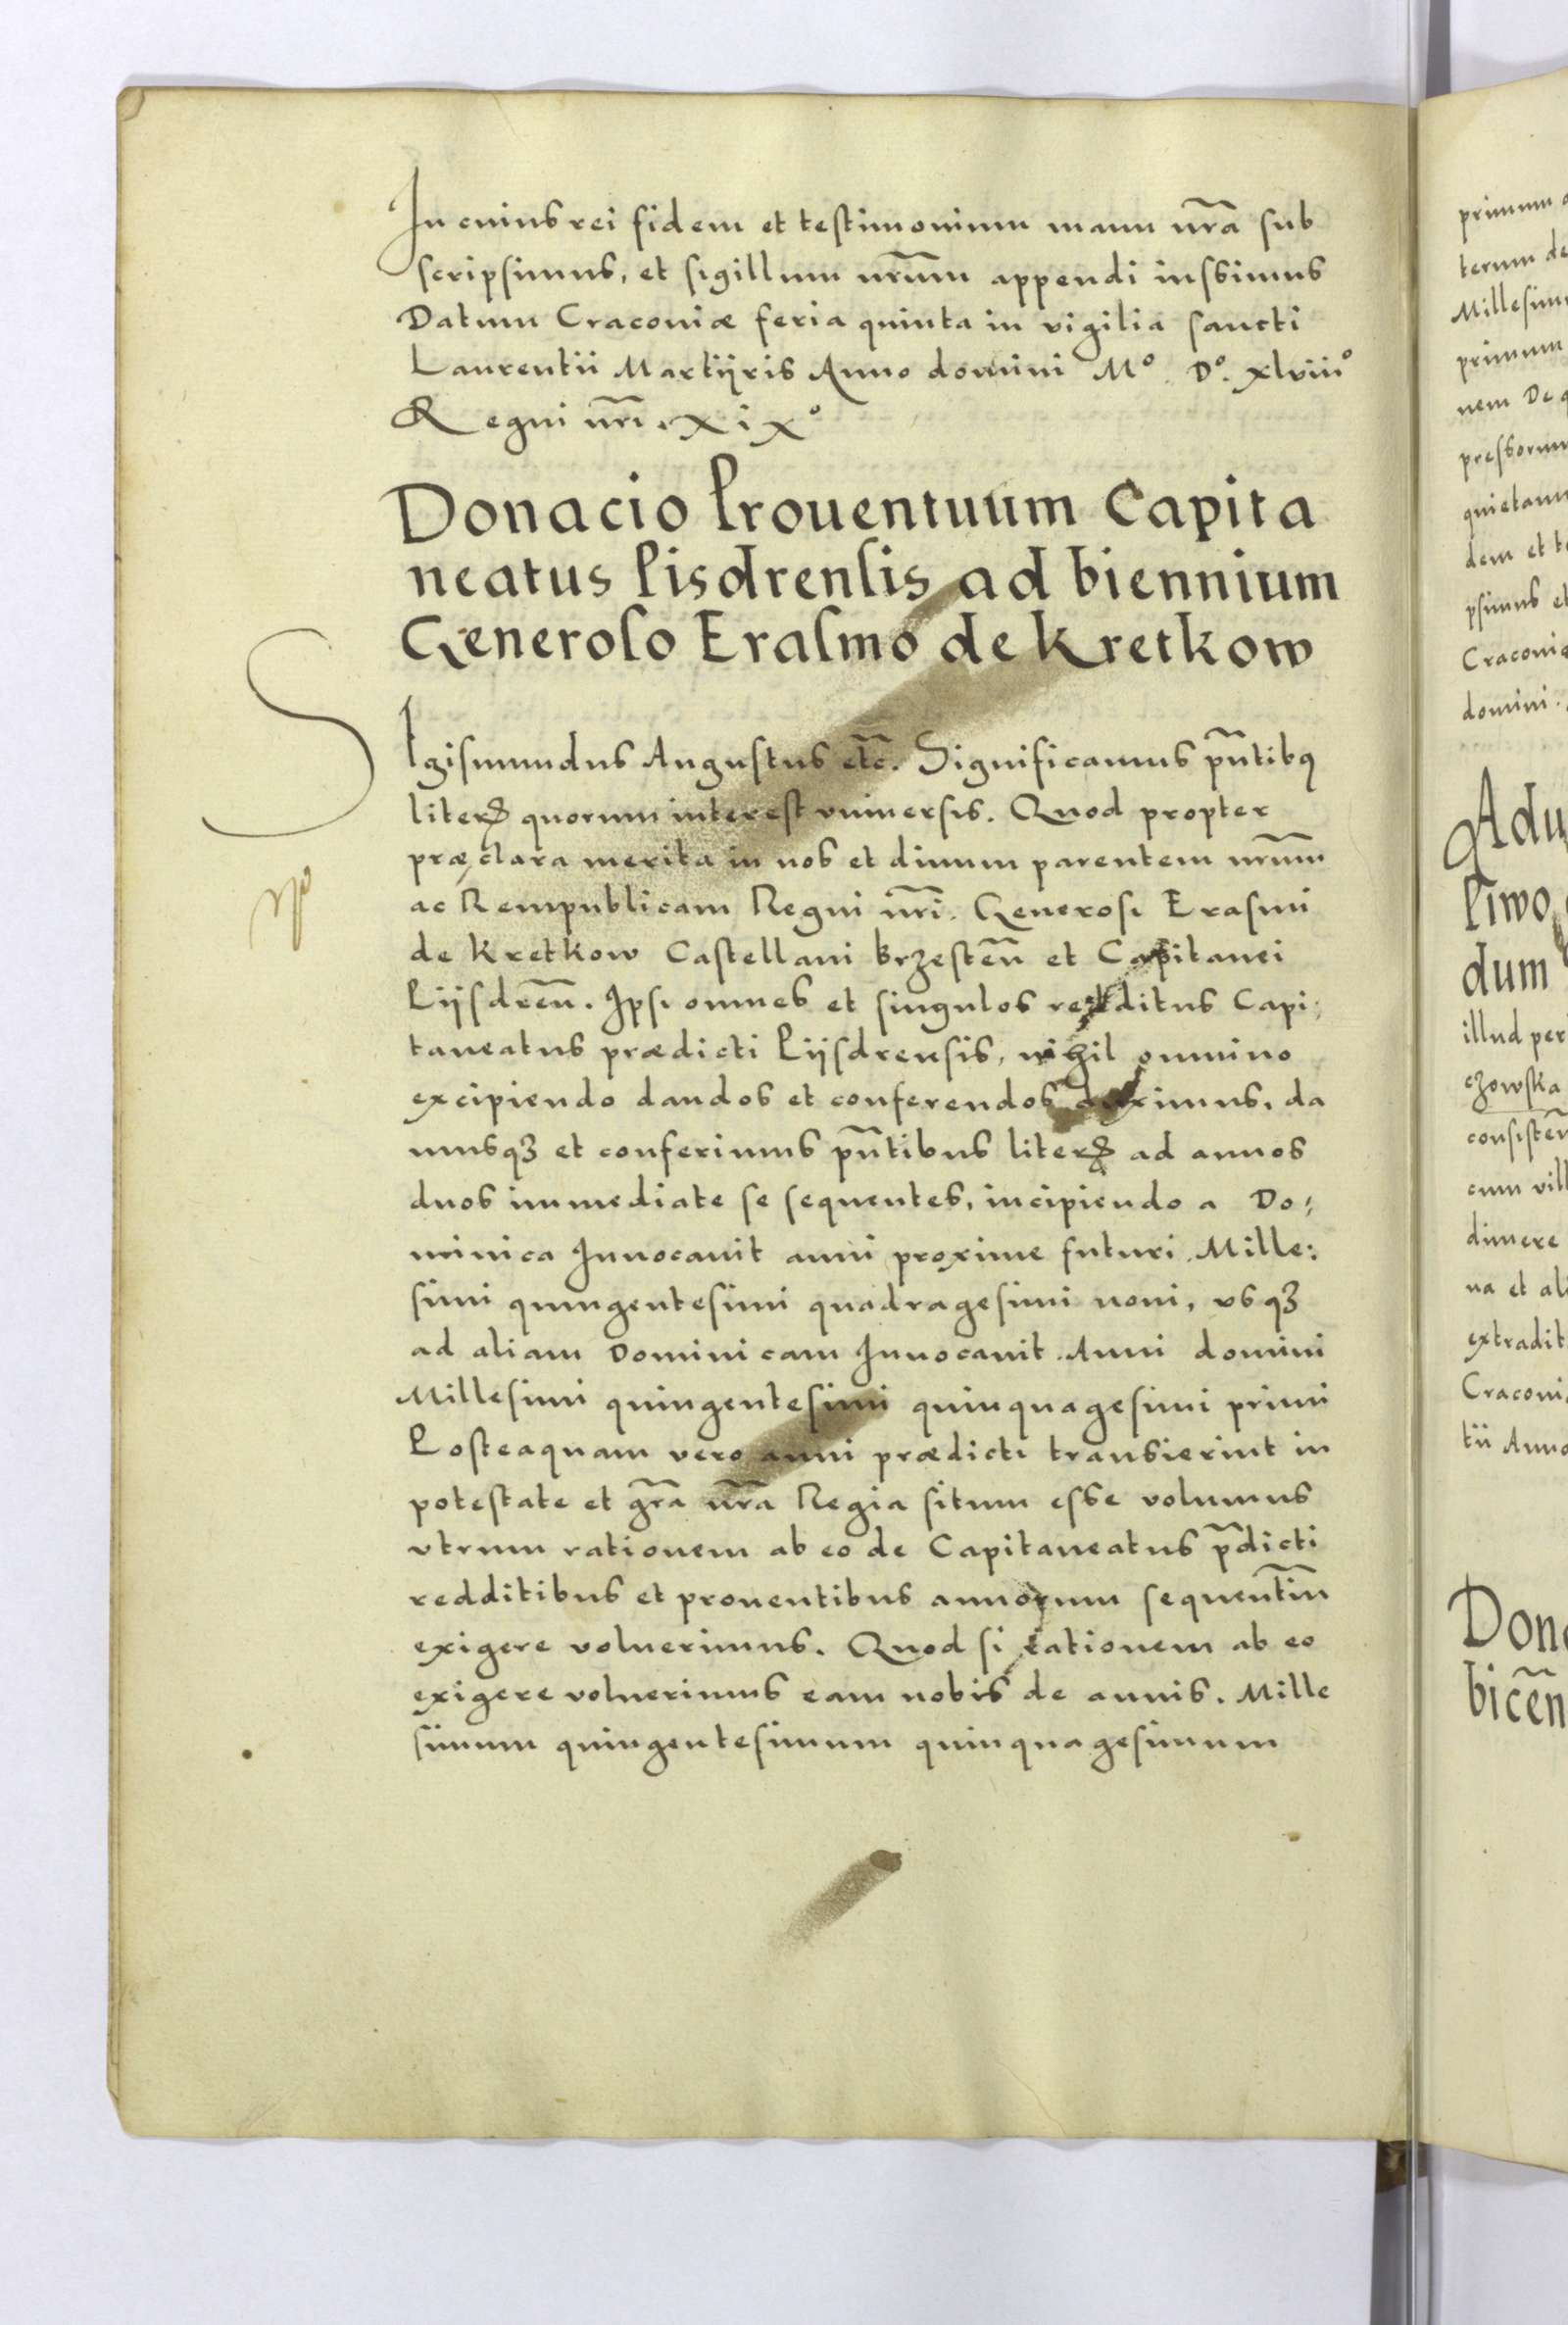 In cuius rei fidem et testimonium manu nr̃a sub
scripsimus, et sigillum nrũm appendi iussimus
Datum Cracoviæ feria quinta in vigilia sancti
Laurentii Martÿris Anno domini Mº. Dº. xlviiiº
Regni nr̃i. xixº
Donacio Prouentuum Capita
neatus Pisdrensis ad biennium
Generoso Erasmo de Kretkow
SIgismundus Augustus etc̃. Significamus pñtibꝫ
literꝭ quorum interest vniuersis. Quod propter
præclara merita in nos et diuum parentem nrũm
ac Rempublicam Regni nr̃i. Generosi Erasmi
de Kretkow Castellani Brzesteñ et Capitanei
Pijsdreñ. Ipsi omnes et singulos redditus Capi,
taneatus prædicti Pijsdrensis, nihil omnino
excipiendo dandos et conferendos duximus, da
musqꝫ et conferimus pñtibus literꝭ ad annos
duos immediate se sequentes, incipiendo a Do,
minica Inuocauit anni proxime futuri Mille:
simi quingentesimi quadragesimi noni, vsqꝫ
ad aliam Dominicam Inuocauit Anni domini
Millesimi quingentesimi quinquagesimi primi
Posteaquam vero anni prædicti transierint in
potestate et gr̃a nr̃a Regia situm esse volumus
vtrum rationem ab eo de Capitaneatus p̃dicti
redditibus et prouentibus annorum sequentiũ
exigere voluerimus. Quod si rationem ab eo
exigere voluerimus eam nobis de annis. Mille
simum quingentesimum quinquagesimum
primum
terum de
Millesim
primum
nem De
pressorum
quietam
dem et
psimus et
Cracoviæ
domini.
Adu
Piwo
dum
illud per
czowska
consisteñ
cum vill
dimere
na et al
extradit
Cracovi
tii Anno
Don
biceñ